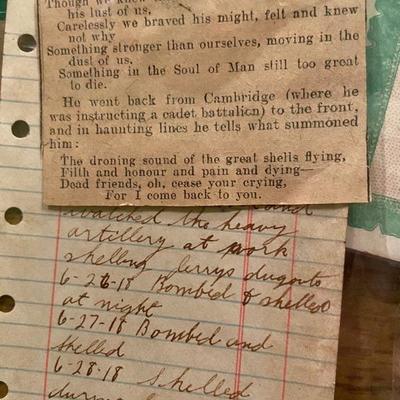 Though we knew
his lust of us,
Carelessly we braved his might, felt and knew
not why
Something stronger than ourselves, moving in the
dust of us,
Something in the Soul of Man still too great
to die.
He went back from Cambridge (where he
was instructing a cadet battalion) to the front,
and in haunting lines he tells what summoned
him:
The droning sound of the great shells flying,
Filth and honour and pain and dying—
Dead friends, oh, cease your crying,
For I come back to you.
and
watched the heavy
artillery at work
shelling Jerrys dugouts
6-26-18 Bombed & shelled
at night
6-27-18 Bombed and
shelled
6-28-18 Shelled
during